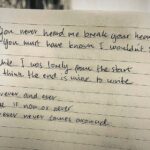 you never heard me break your heart
you must have known I wouldn't
I was lonely from the start
I think the end is mine to write
ever and ever
is now or never
never never comes around